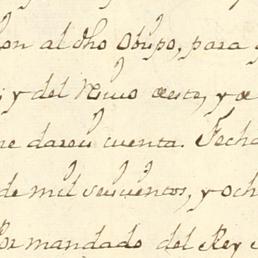 on al dho Obispo, para
y del Nuevo
me dareis cuenta. Fecha
de mil seiscientos, y och
Por mandado del Rey